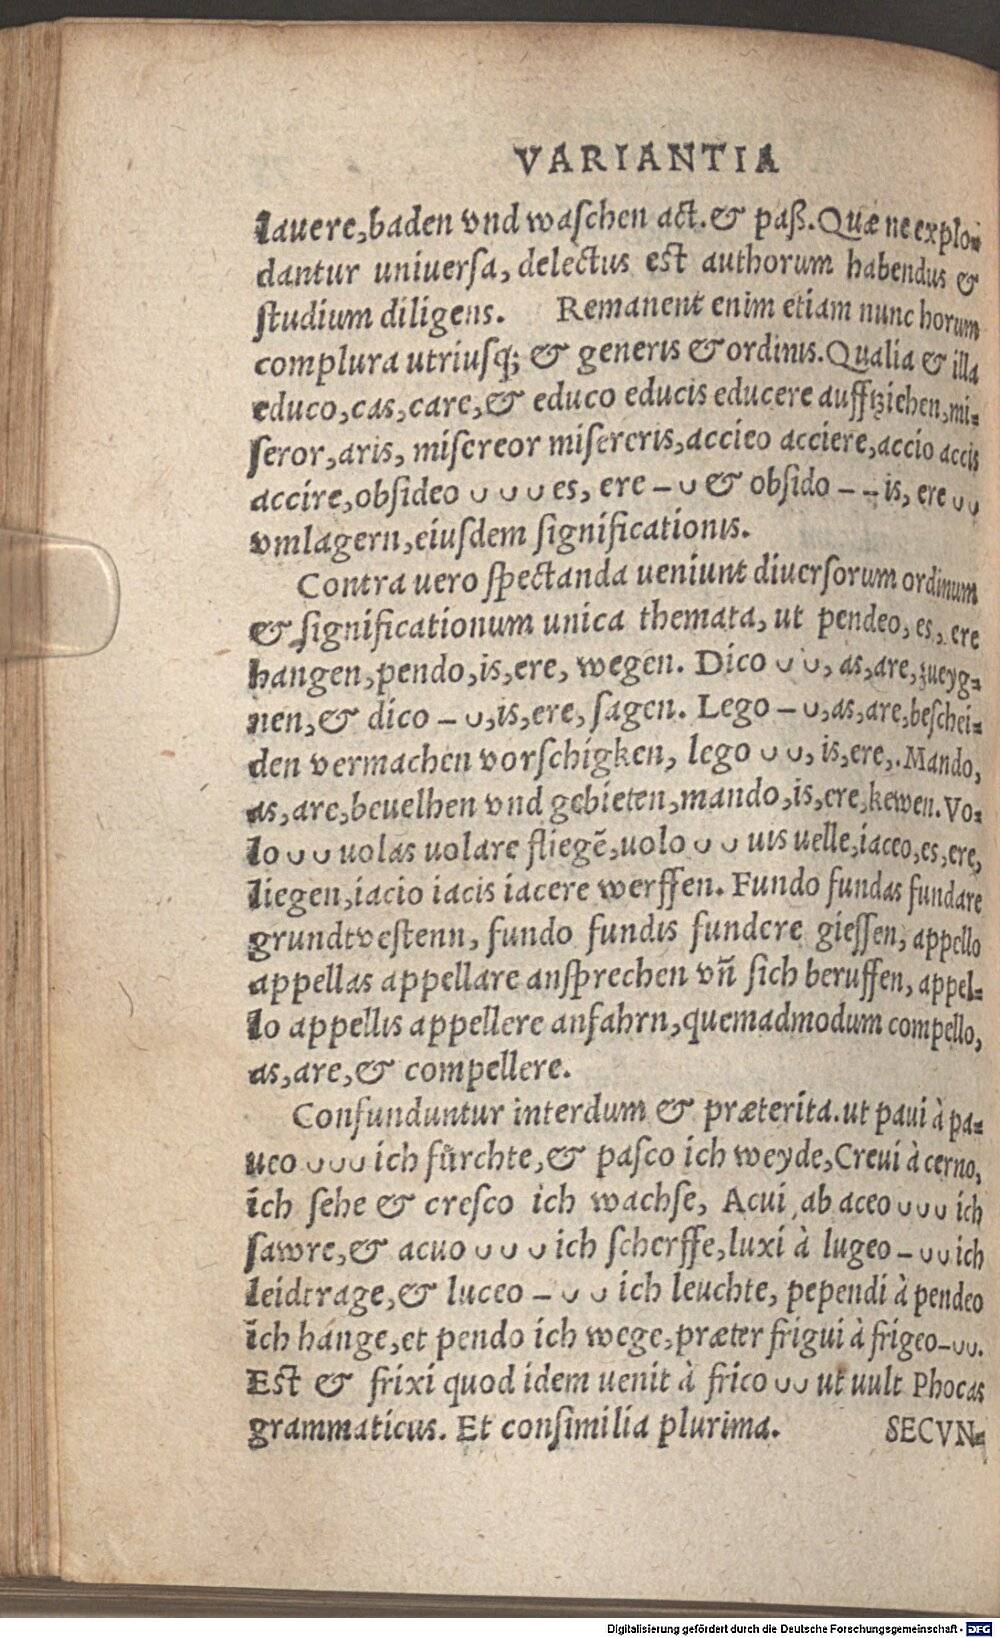 VARIANTIA
lauere,baden vnd waſchen act.& paß.Quæ ne explo-
dantur uniuerſa, delectus est authorum habendus &
ſtudium diligens. Remanent enim etiam nunc horum
complura utriuſq; & generis & ordinis.Qualia & illa
educo,cas,care,& educo educis educere aufftziehen,mi-
ſeror,aris, miſereor miſereris,accieo acciere,accio accis
accire,obſideo ᴗ ᴗ ᴗ es, ere – ᴗ & obſido – – is, ere ᴗ ᴗ
vmlagern,eiuſdem ſignificationis.
Contra uero ſpectanda ueniunt diuerſorum ordinum
& ſignificationum unica themata, ut pendeo, es, ere
hangen,pendo,is,ere, wegen. Dico ᴗ ᴗ, as,are,zueyg-
nen,& dico – ᴗ,is,ere, ſagen. Lego – ᴗ,as,are,beſchei-
den vermachen vorſchigken, lego ᴗ ᴗ, is,ere,.Mando,
as,are,beuelhen vnd gebieten,mando,is,ere,kewen.Vo-
lo ᴗ ᴗ uolas uolare fliegē,uolo ᴗ ᴗ uis uelle,iaceo,es,ere,
liegen,iacio iacis iacere werffen. Fundo fundas fundare
grundtveſtenn, fundo fundis fundere gieſſen, appello
appellas appellare anſprechen vñ ſich beruffen, appel-
lo appellis appellere anfahrn,quemadmodum compello,
as,are,& compellere.
Confunduntur interdum & præterita.ut paui à pa-
ueo ᴗ ᴗ ᴗ ich fürchte,& paſco ich weyde,Creui à cerno,
ich ſehe & creſco ich wachſe, Acui ab aceo ᴗ ᴗ ᴗ ich
ſawre,& acuo ᴗ ᴗ ᴗ ich ſcherffe,luxi à lugeo – ᴗ ᴗ ich
leidtrage,& luceo – ᴗ ᴗ ich leuchte, pependi à pendeo
ich hange,et pendo ich wege,præter frigui à frigeo – ᴗ ᴗ.
Est & frixi quod idem uenit à frico ᴗ ᴗ ut uult Phocas
grammaticus. Et conſimilia plurima. SECVN-
Digitalisierung gefördert durch die Deutsche Forschungsgemeinschaft - DFG